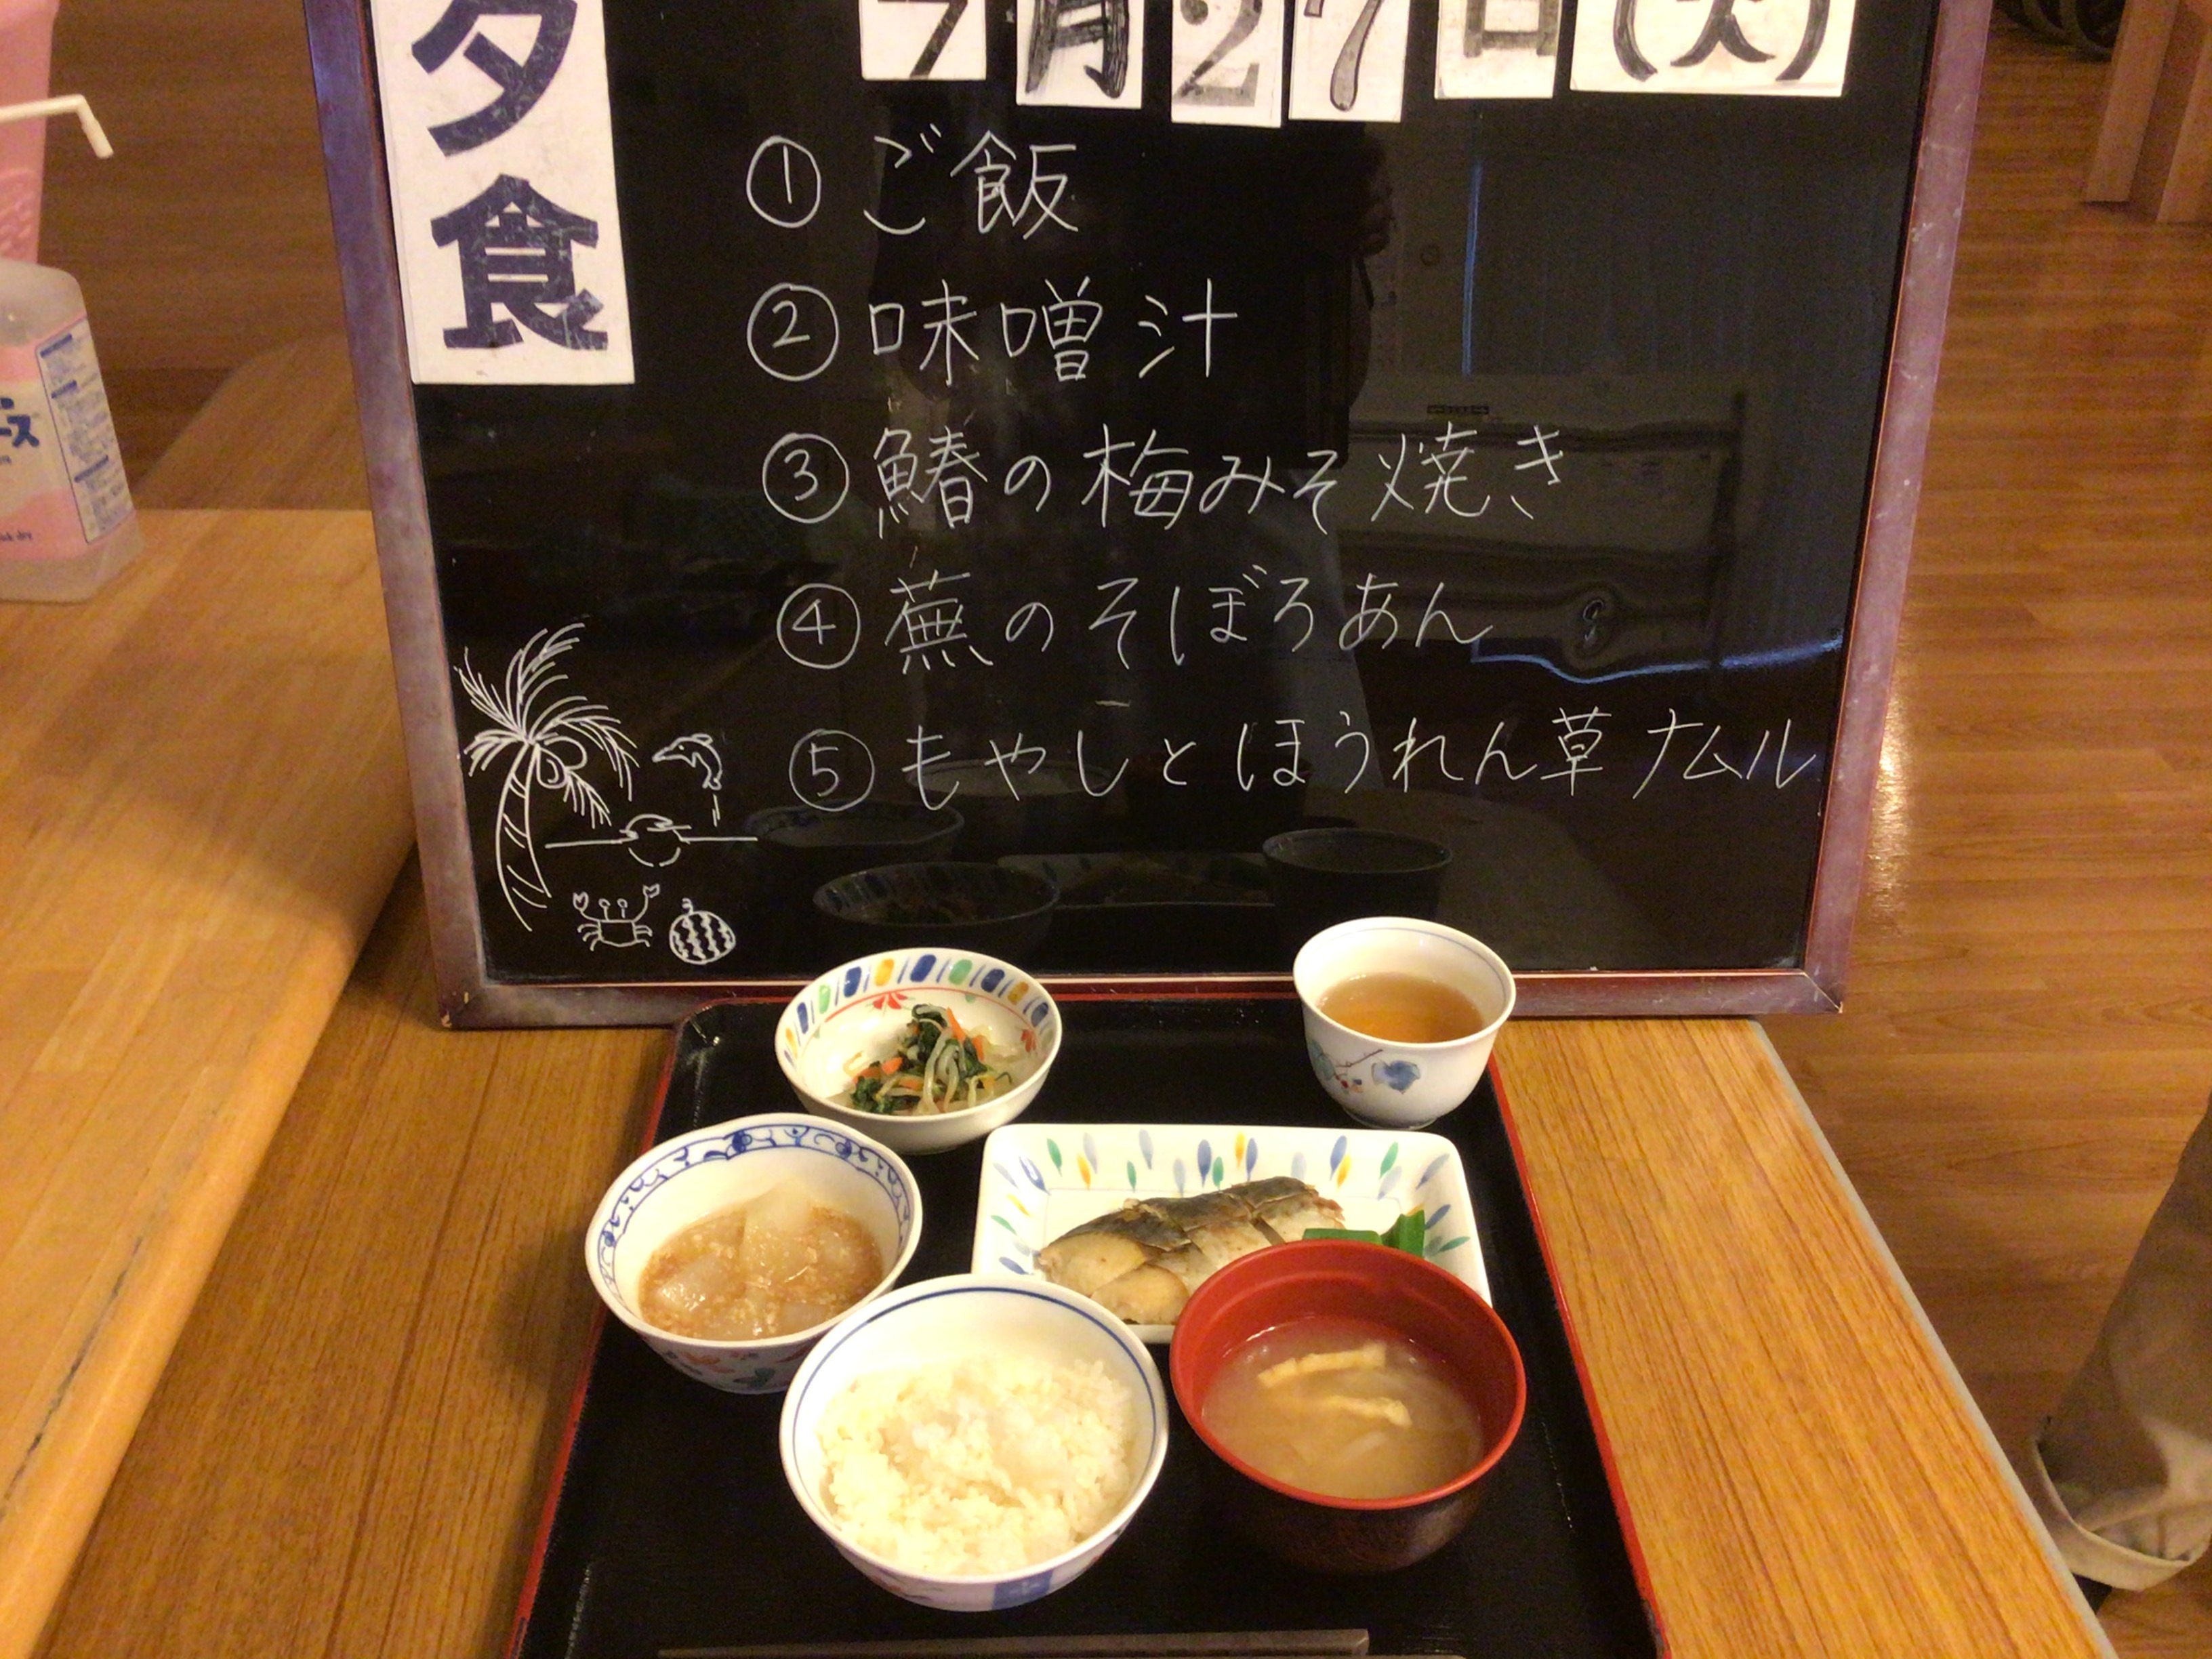 夕食
7月27日(火)
①ご飯
②味噌汁
③鰆の梅みそ焼き
④蕪のそぼろあん
⑤もやしとほうれん草ナムル
ース